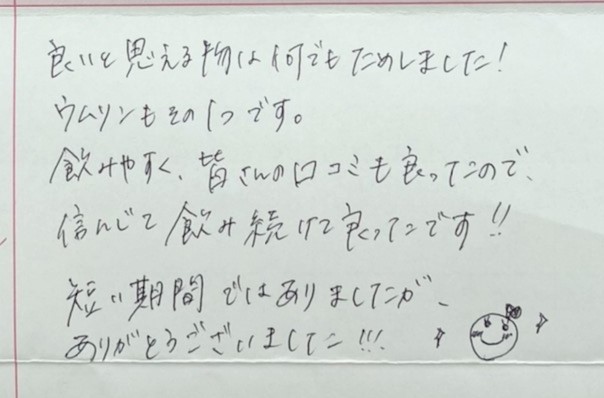 良いと思える物は何でもためしました!
ウムリンもその1つです。
飲みやすく、皆さんの口コミも良かったので、
信んじて飲み続けて良かったです!!
短い期間ではありましたが、
ありがとうございました!!!